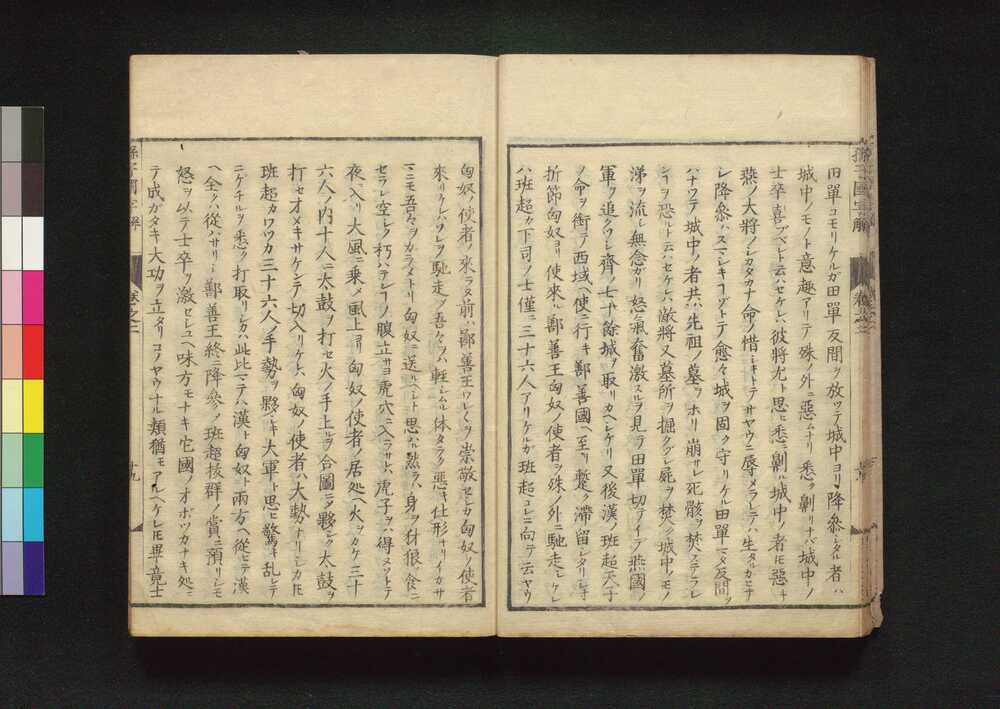 田單コモリケルガ田單反間ヲ放ツテ城中ヨリ降參シタル者ハ
城中ノモノト意趣アリテ殊ノ外ニ惡ムナリ悉ク劓リナバ城中ノ
士卒喜ブベシト云ハセケレバ彼將尤ト思ヒ悉ク劓ル城中ノ者𪜈惡キ
燕ノ大將ノシカタカナ命ノ惜シキトテサヤウニ辱メラレテハ生タルカヒナ
シ降參ハスマシキコトゾトテ愈々城ヲ固ク守リケル田單マタ反間ヲ
ハナツテ城中ノ者共ハ先祖ノ墓ヲホリ崩サレ死骸ヲ焚ステラレ
ンコヲ恐ルト云ハセケレバ敵將又墓所ヲ掘クヅシ屍ヲ焚ク城中ノモノ
涕ヲ流シ無念ガリ怒氣奮激スルヲ見テ田單切テイデ燕國ノ
軍ヲ追クツシ齊ノ七十餘城ヲ取リカヘシケリ又後漢ノ班超天子
ノ命ヲ銜テ西域ヘ使ニ行キ鄯善國ヘ至リ暫ク滯留シタリシニ
折節匈奴ヨリ使來ル鄯善王匈奴ノ使者ヲ殊ノ外ニ馳走シケレ
ハ班超カ下司ノ士僅ニ三十六人アリケルカ班超コレニ向テ云ヤウ
匈奴ノ使者ノ來ラヌ前ハ鄯善王ワレ〱ヲ崇敬セシカ匈奴ノ使者
來リテヨリソレヲ馳走シ吾々ヲハ輕シムル体タラク惡キ仕形ナリイカサ
マニモ吾々ヲカラメトリ匈奴ニ送ルベシト思ハル然ラハ身ヲ豺狼ノ食ニ
セラレ空シク朽ハテンコノ腹立サヨ虎穴ニ入ラサレハ虎子ヲハ得ヌソトテ
夜ニ入リ大風ニ乘メ風上ヨリ匈奴ノ使者ノ居処ヘ火ヲカケ三十
六人ノ内十人ニ太鼓ヲ打セ火ノ手上ルヲ合圖ニ夥シク太鼓ヲ
打セオメキサケンテ切入リケレハ匈奴ノ使者ハ大勢ナリシカ𪜈
班超カワツカ三十六人ノ手勢ヲ夥シキ大軍ト思ヒ驚キ乱レテ
ニケチルヲ悉ク打取リシカハ此比マテハ漢ト匈奴ト兩方ヘ從ヒテ漢
ヘ全クハ從ハサリシ鄯善王終ニ降參メ班超拔群ノ賞ニ預リシモ
怒ヲ以テ士卒ヲ激セシユヘ味方モナキ它國ノオボツカナキ処ニ
テ成ガタキ大功ヲ立タリコノヤウナル類猶モアルヘケレ𪜈畢竟士
孫子國字解
卷之二
十九